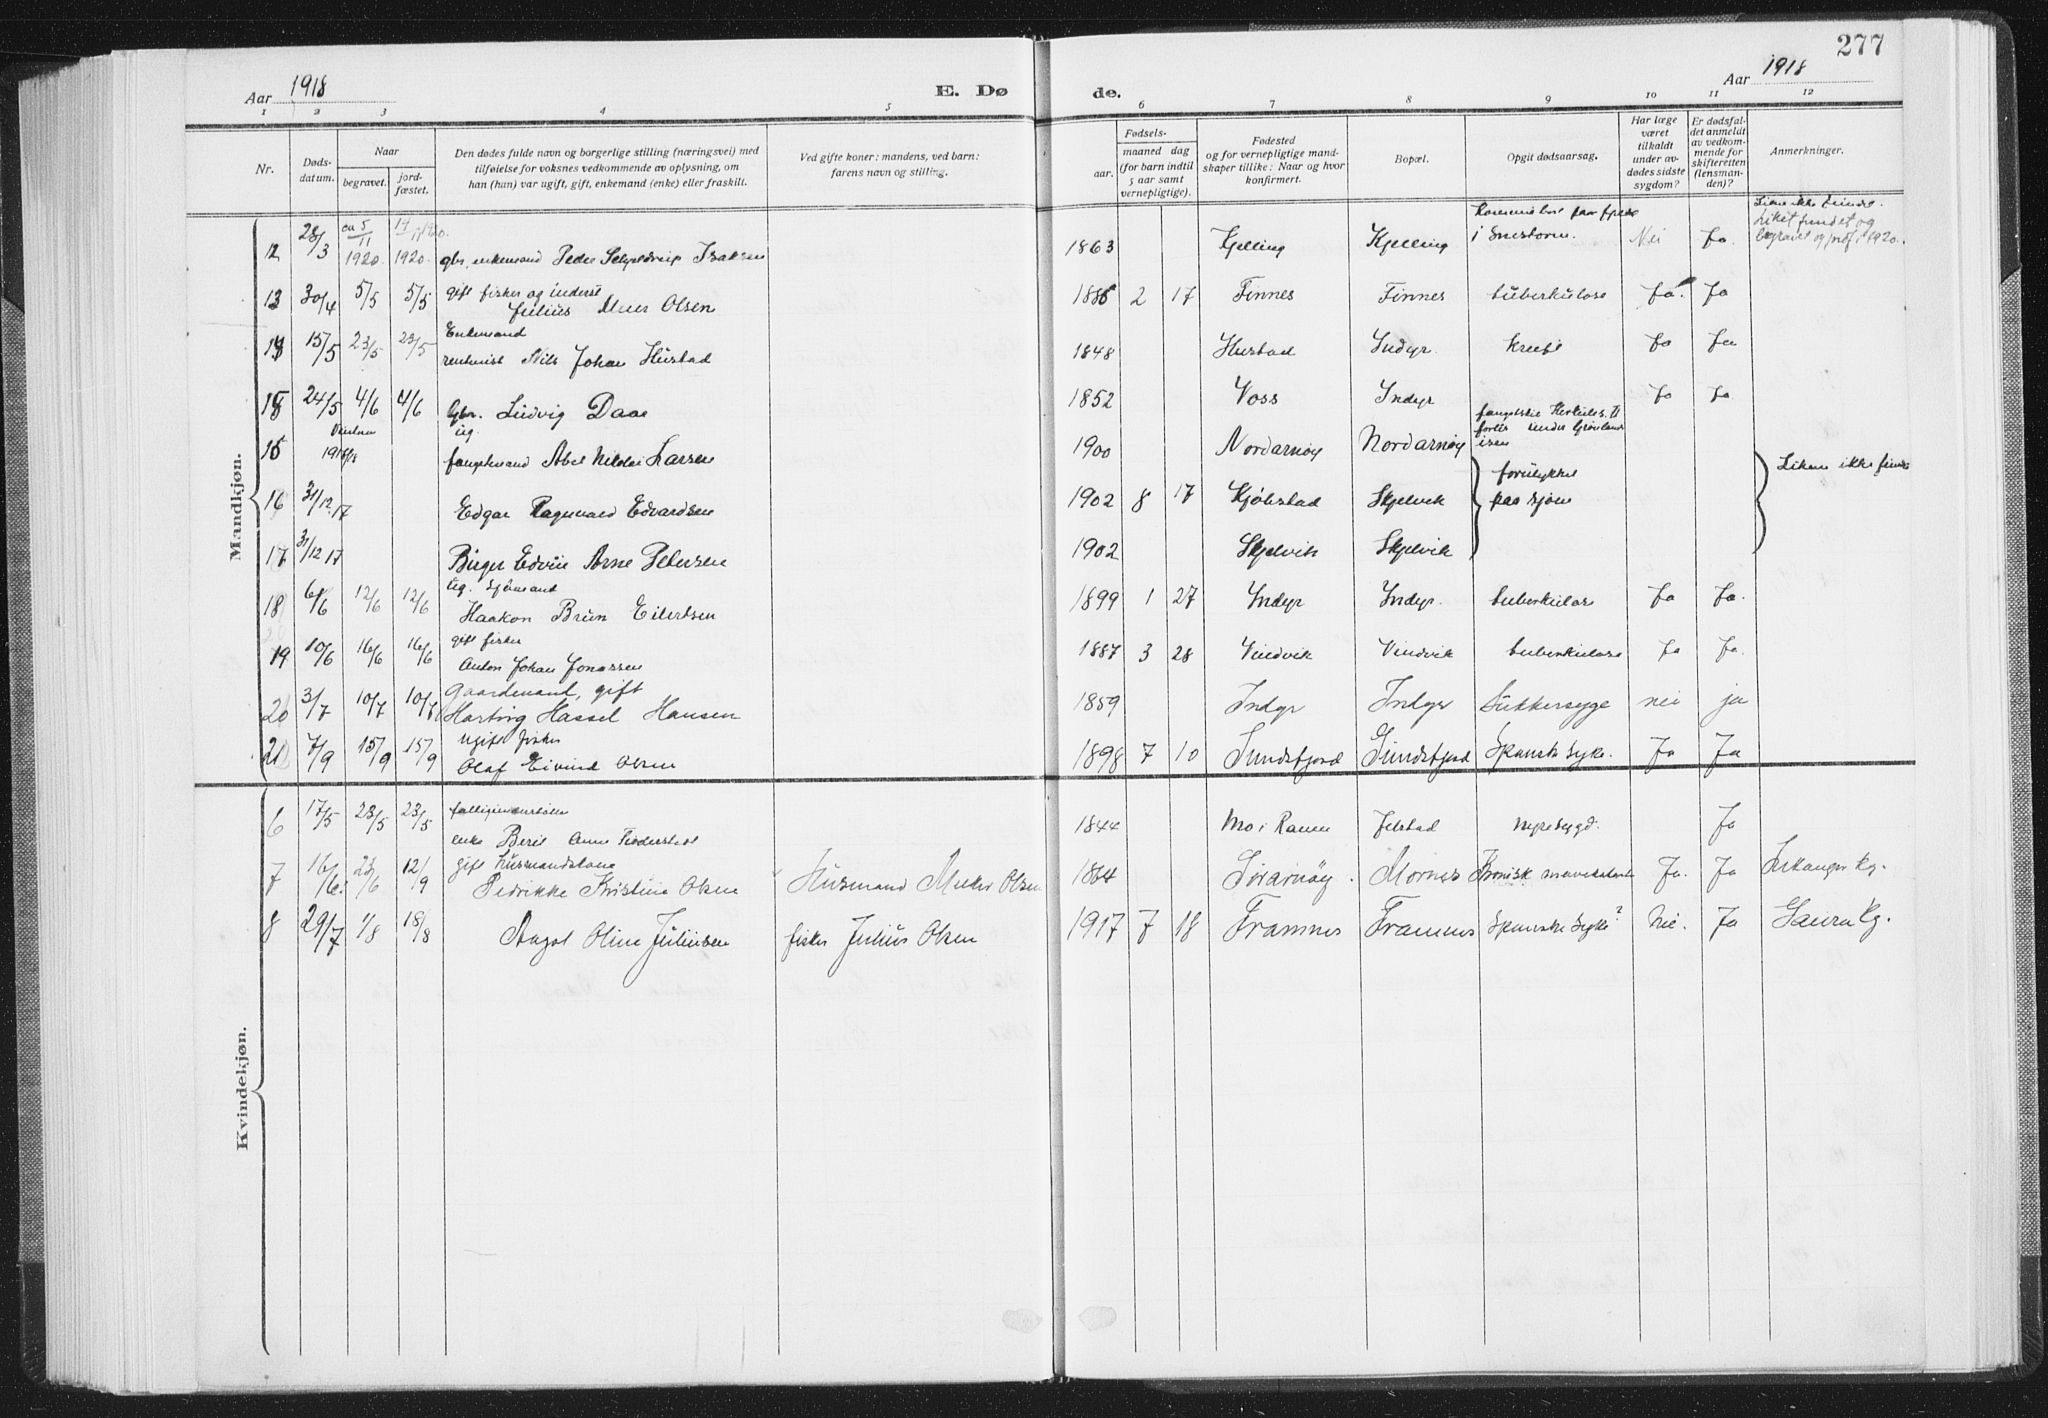 277
Aar 1918
E. Dø
de.
Aar 1918
1 2 3 4 5 6 7 8 9 10 11 12
Nr.
Døds-
datum.
Naar
begravet.
jord-
fæstet.
Den dødes fulde navn og borgerlige stilling (næringsvei) med
tilføielse for voksnes vedkommende av oplysning, om
han (hun) var ugift, gift, enkemand (enke) eller fraskilt.
Ved gifte koner: mandens, ved barn:
farens navn og stilling.
Fødsels-
aar.
maaned dag
(for barn indtil
5 aar samt
vernepligtige).
Fødested
og for vernepligtige mand-
skaper tillike: Naar og hvor
konfirmert.
Bopæl.
Opgit dødsaarsag.
Har læge
været
tilkaldt
under av-
dødes sidste
sygdom?
Er dødsfal-
det anmeldt
av vedkom-
mende for
skifteretten
(lensman-
den)?
Anmerkninger.
Mandkjøn.
12 28/3 ca 5/11 1920. 1920. gbr. enkemand Peder Isaksen 1863 Kjelling Kjelling i Snestorm. Nei Ja Liket fundet og begravet 1920.
13 30/4 5/5 5/5 gift fisker og inderst
Julius Olsen 1885 2 17 Finnes Finnes tuberkulose Ja. Ja
14 15/5 23/5 23/5 Enkemand
rentenist Nils Johan Hustad 1848 Hustad Indyr. kreft Ja Ja
15 24/5 4/6 4/6 Gbr. Ludvig Daae 1852 Voss Indyr Ja Ja
15 ug.
fangstmand Abel Nikolai Larsen 1900 Nordarnøy Nordarnøy forlis under Grønlands isen
16 31/12.17 Edgar Ragnvald Edvardsen 1902 8 17 Kjøbstad Skjelvik forulykket paa sjøen Likene ikke
17 31/12 17 Birger Edvin Arne Petersen 1902 Skjelvik Skjelvik
18 6/6 12/6 12/6 ug. Sjømand
Haakon Brun Eilertsen 1899 1 27 Indyr Indyr. tuberkulose Ja Ja.
19 10/6 16/6 16/6 gift fisker
Anton Johan Jonassen 1887 3 28 Vindvik Vindvik tuberkulose Ja Ja.
20 3/7 10/7 10/7 Gaardmand, gift
Hartvig Hassel Hansen 1859 Indyr Indyr Sukkersyge nei ja
21 7/9 15/9 15/9 ugift fisker
Olaf Eivind Olsen 1898 7 10 Sundsfjord Sundsfjord Spansk syke. Ja Ja
Kvindekjøn.
6 17/5 23/5 23/5
enke Beril Anna 1844 Mo i Ranen Jelstad Ja
7 16/6. 23/6 12/9 gift husmandskone
Pedrikke Kristine Olsen Husmand Olsen Sørarnøy. Mornes Kronisk Ja. Ja
8 29/7 1/8 18/8 Aagot Oline Juliusen fisker Julius Olsen 1917 7 18 Framnes Framnes Spanske syke? Nei. Ja